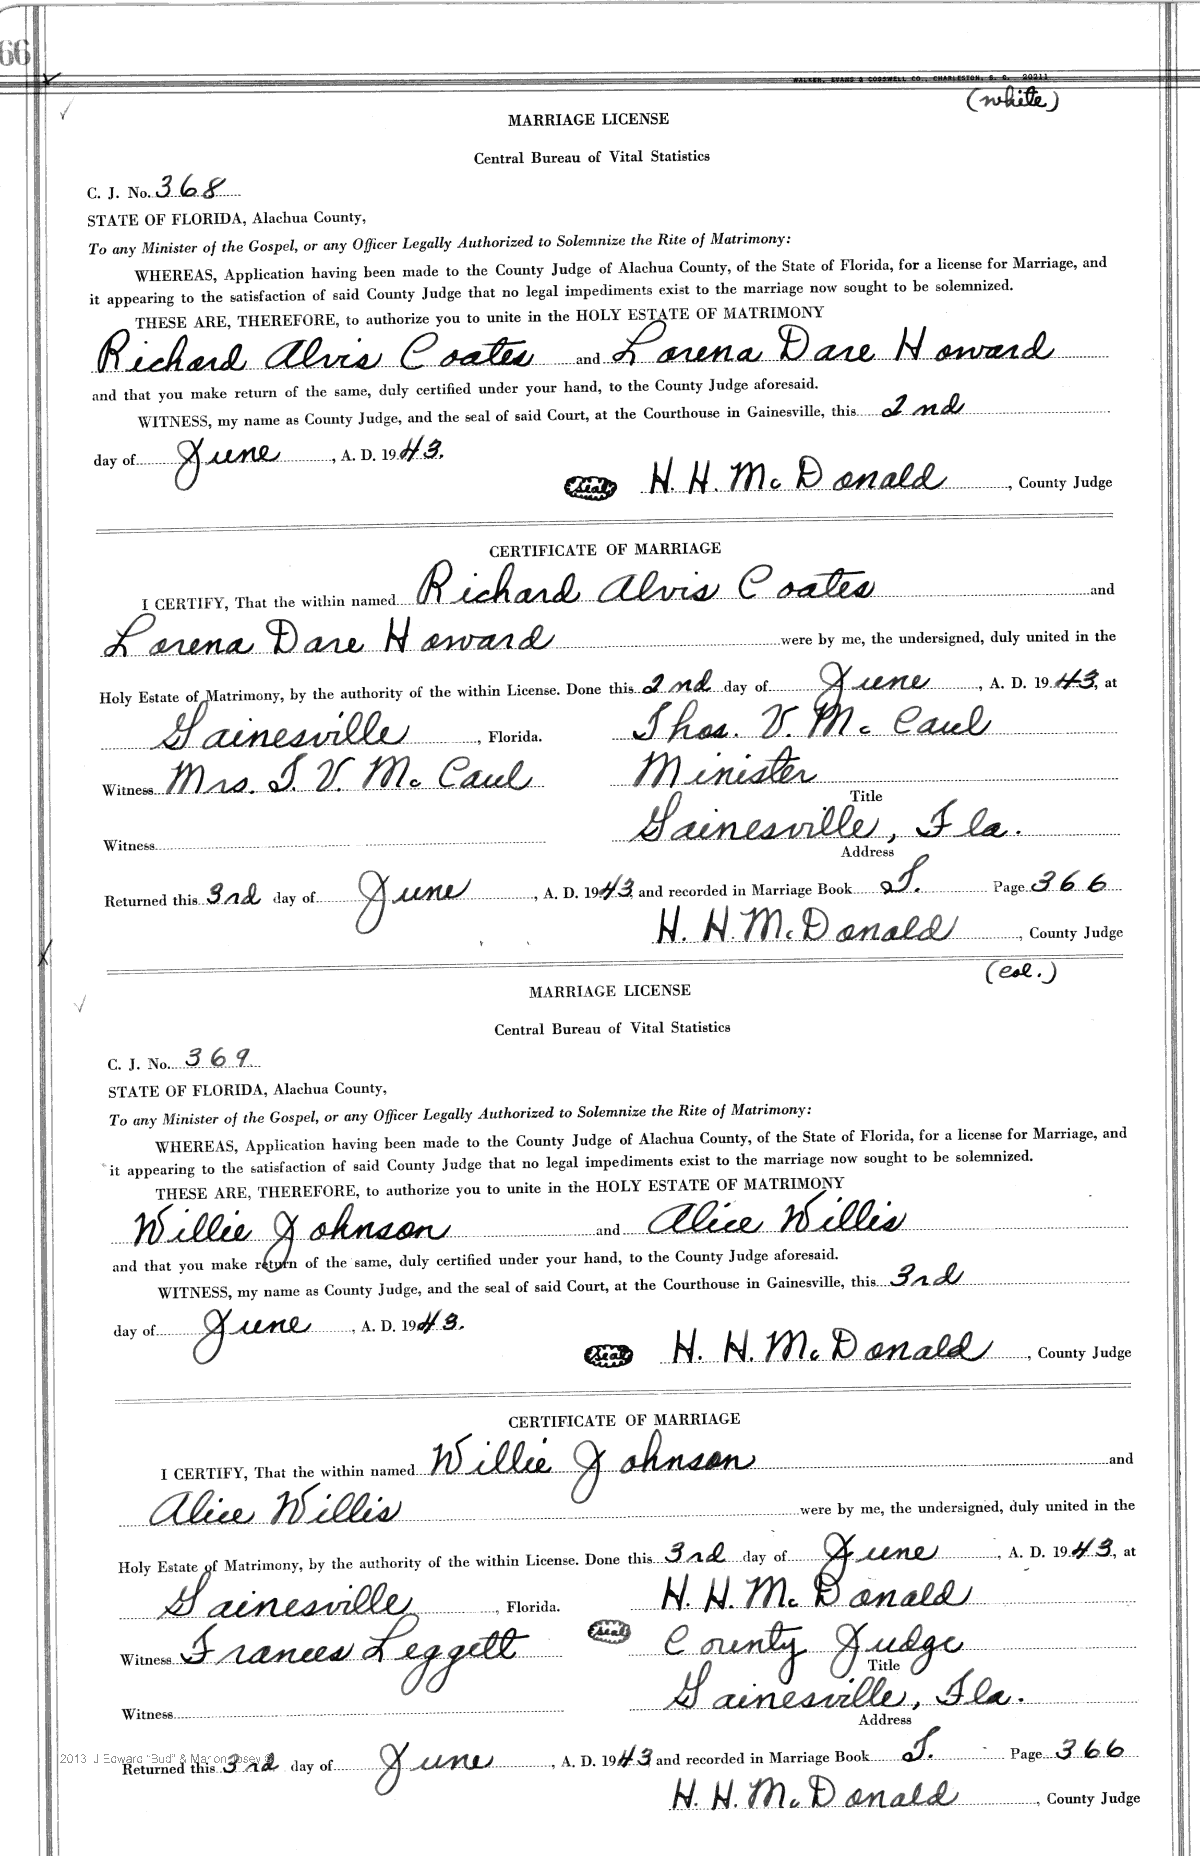 66
WALKER, EVANS & COGSWELL CO., CHARLESTON, S. C. 20211
(white)
MARRIAGE LICENSE
Central Bureau of Vital Statistics
C. J. No. 368
STATE OF FLORIDA, Alachua County,
To any Minister of the Gospel, or any Officer Legally Authorized to Solemnize the Rite of Matrimony:
WHEREAS, Application having been made to the County Judge of Alachua County, of the State of Florida, for a license for Marriage, and
it appearing to the satisfaction of said County Judge that no legal impediments exist to the marriage now sought to be solemnized.
THESE ARE, THEREFORE, to authorize you to unite in the HOLY ESTATE OF MATRIMONY
Richard Alvis Coates and Lorena Dare Howard
and that you make return of the same, duly certified under your hand, to the County Judge aforesaid.
WITNESS, my name as County Judge, and the seal of said Court, at the Courthouse in Gainesville, this 2nd
day of June, A. D. 1943.
seal H. H. McDonald, County Judge
CERTIFICATE OF MARRIAGE
I CERTIFY, That the within named Richard Alvis Coates and
Lorena Dare Howard were by me, the undersigned, duly united in the
Holy Estate of Matrimony, by the authority of the within License. Done this 2nd day of June, A. D. 1943, at
Gainesville, Florida. Thos. V. McCaul
Witness Mrs. T. V. McCaul Minister
Title
Gainesville, Fla.
Witness
Address
Returned this 3rd day of June, A. D. 1943 and recorded in Marriage Book T. Page 366
H. H. McDonald, County Judge
(col.)
MARRIAGE LICENSE
Central Bureau of Vital Statistics
C. J. No. 369
STATE OF FLORIDA, Alachua County,
To any Minister of the Gospel, or any Officer Legally Authorized to Solemnize the Rite of Matrimony:
WHEREAS, Application having been made to the County Judge of Alachua County, of the State of Florida, for a license for Marriage, and
it appearing to the satisfaction of said County Judge that no legal impediments exist to the marriage now sought to be solemnized.
THESE ARE, THEREFORE, to authorize you to unite in the HOLY ESTATE OF MATRIMONY
Willie Johnson and Alice Willis
and that you make return of the same, duly certified under your hand, to the County Judge aforesaid.
WITNESS, my name as County Judge, and the seal of said Court, at the Courthouse in Gainesville, this 3rd
day of June, A. D. 1943.
seal H. H. McDonald, County Judge
CERTIFICATE OF MARRIAGE
I CERTIFY, That the within named Willie Johnson and
Alice Willis were by me, the undersigned, duly united in the
Holy Estate of Matrimony, by the authority of the within License. Done this 3rd day of June, A. D. 1943, at
Gainesville, Florida. H. H. McDonald
Witness Frances Leggett seal County Judge
Title
Gainesville, Fla.
Witness
Address
2013 J Edward "Bud" & Marion
Returned this 3rd day of June, A. D. 1943 and recorded in Marriage Book T. Page 366
H. H. McDonald, County Judge